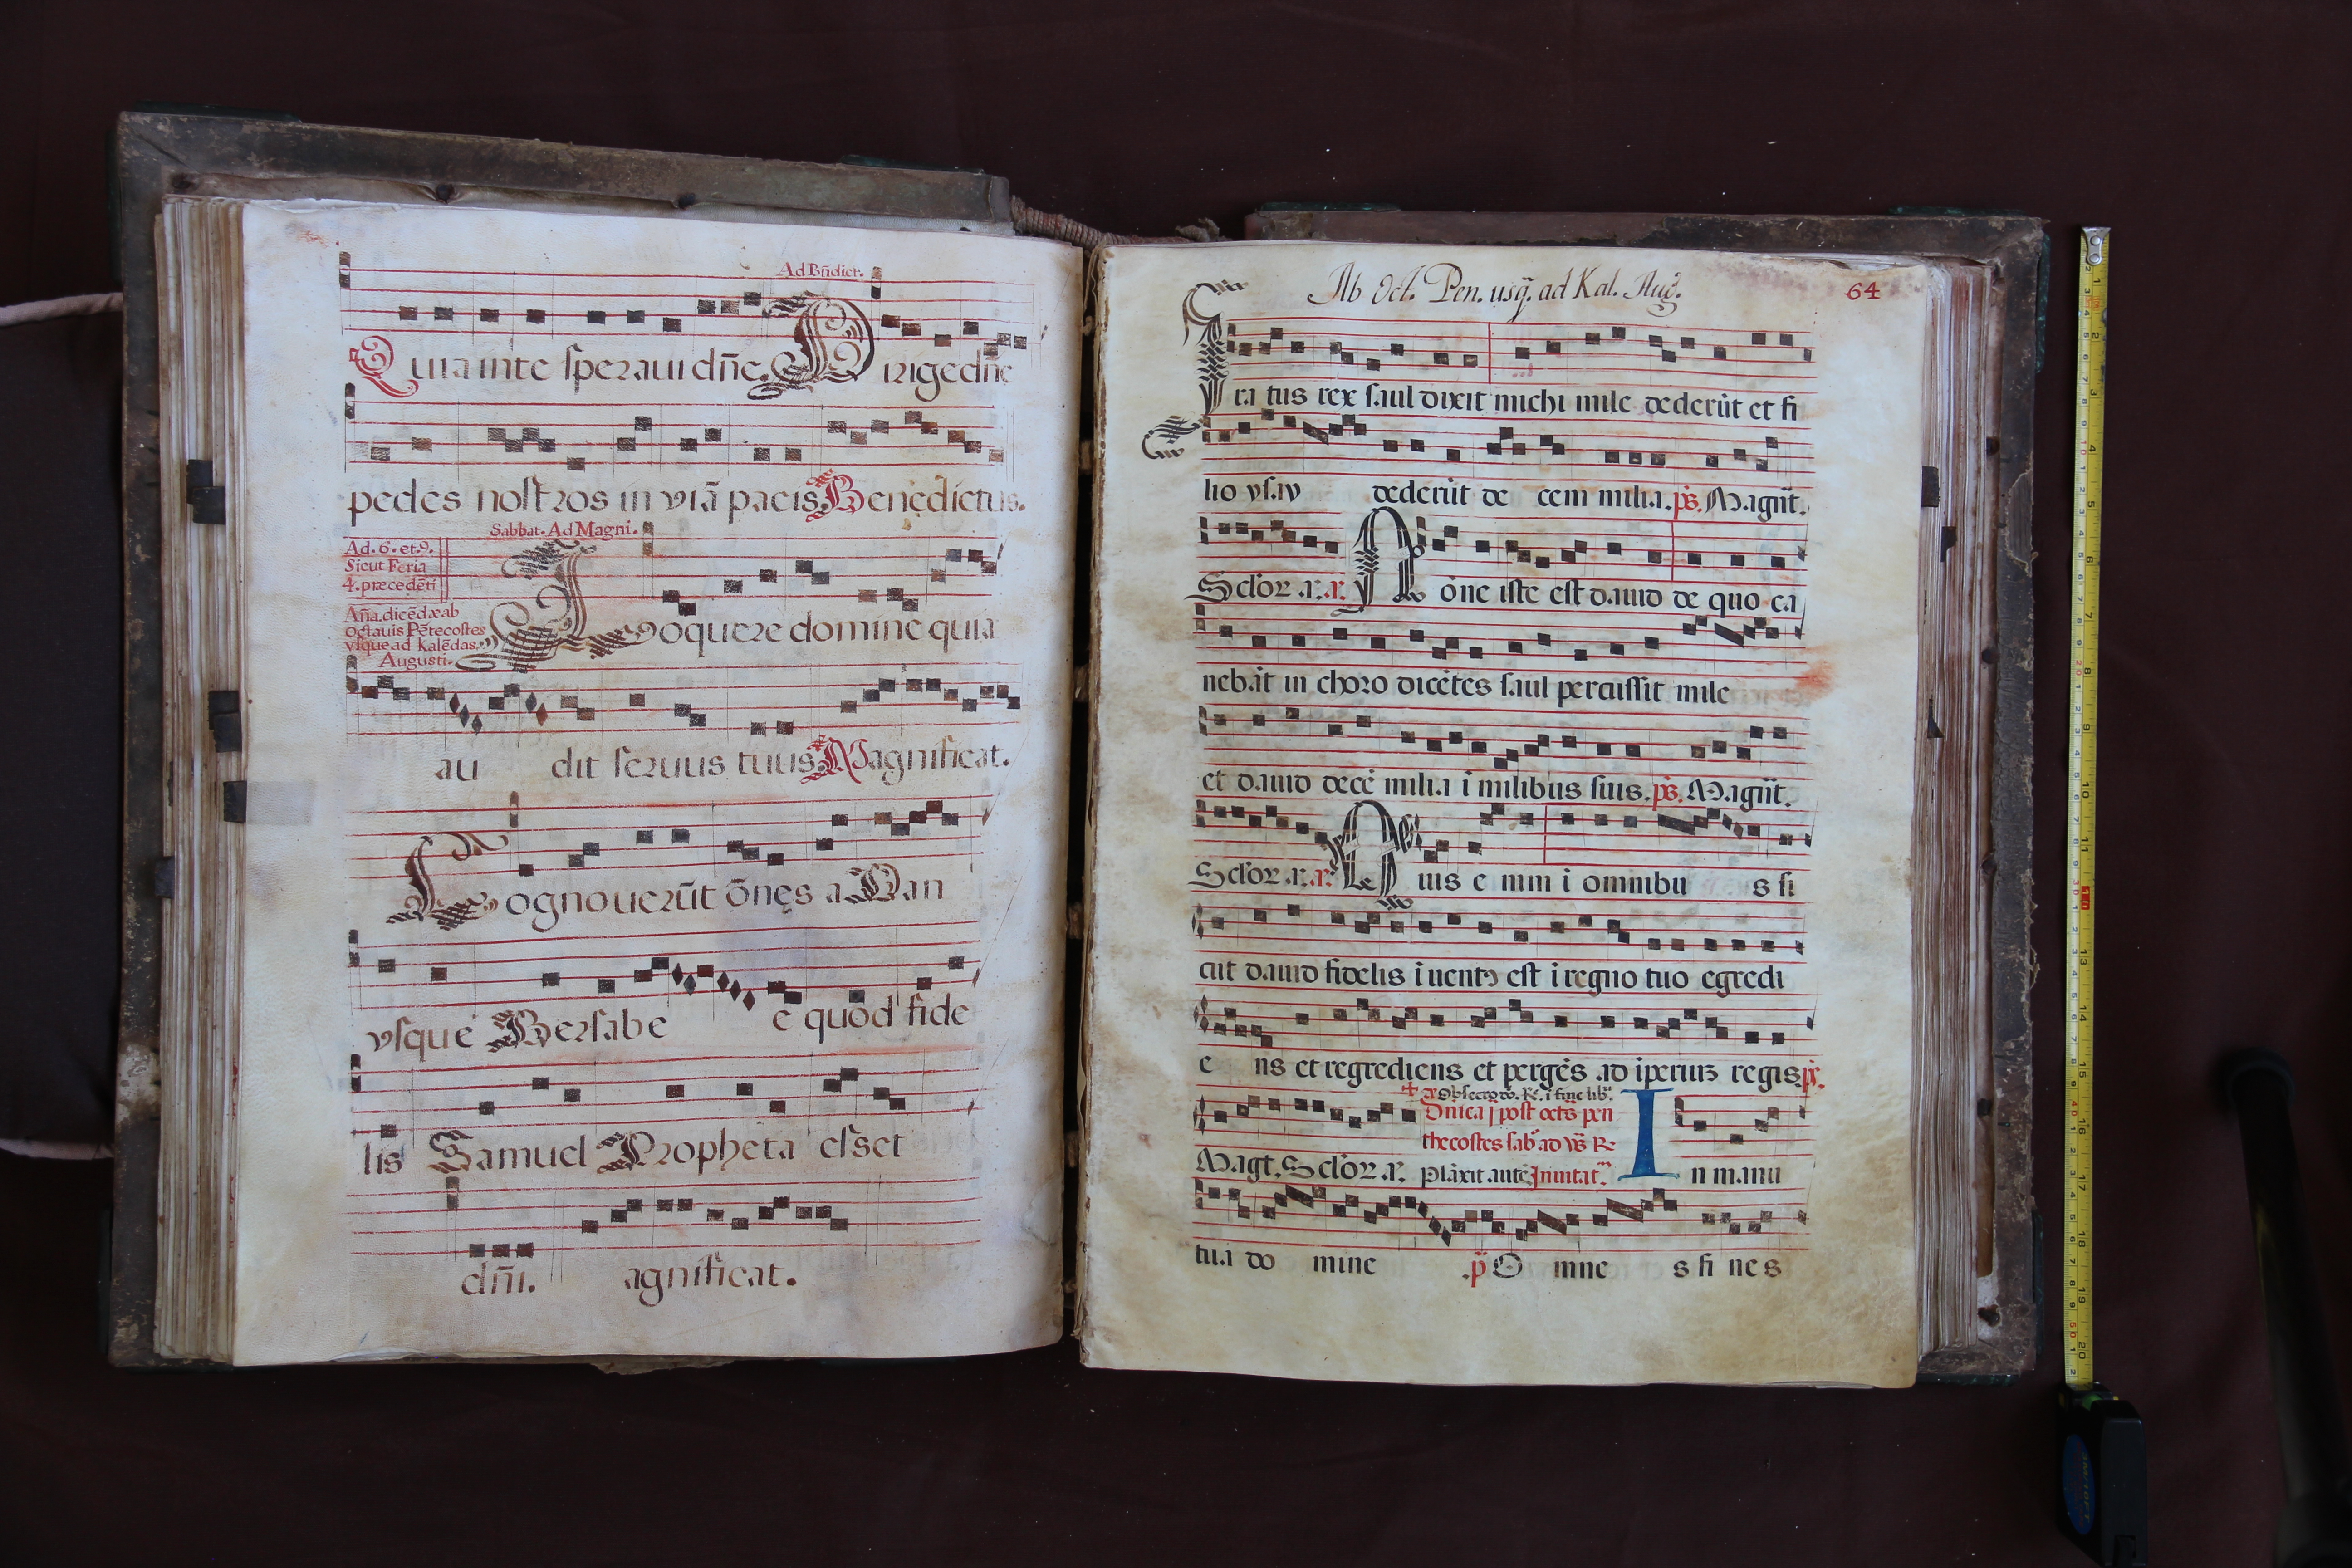 Ad Bñdict.
Quia in te speraui dñe. Dirige dñe
pedes nostros in viã pacis Benedictus.
Sabbat. Ad Magni.
Ad. 6. et. 9.
Sicut Feria
4. præcedẽti
Aña. dicẽdæ ab
Octauis Pẽtecostes
vsque ad Kalẽdas
Augusti.
Loquere domine quia
au dit seruus tuus Magnificat.
Cognouerũt õnes a Dan
vsque Bersabe e quod fide
lis Samuel Propheta esset
dñi. agnificat.
Ab Oct. Pen. usq̃. ad Kal. Aug.
64
Ira tus rex saul dixit michi mile dederũt et fi
lio ysay dederũt de cem milia. ps. Magñt.
Sclor. a. a. Nõne iste est dauid de quo ca
nebãt in choro dicẽtes saul percussit mile
et dauid decẽ milia ĩ milibus suis. ps. Magñt.
Sclor. a. a. Quis e nim ĩ omnibu s si
cut dauid fidelis ĩuentꝰ est ĩ regno tuo egredi
e ns et regrediens et pergẽs ad ĩperiuȝ regis ps.
Dnica j post octs pen
thecostes sab. ad vs R
Magt. Sclor. a. Plãxit autẽ Inuitat. In manu
tua do mine .p O mne s fi nes